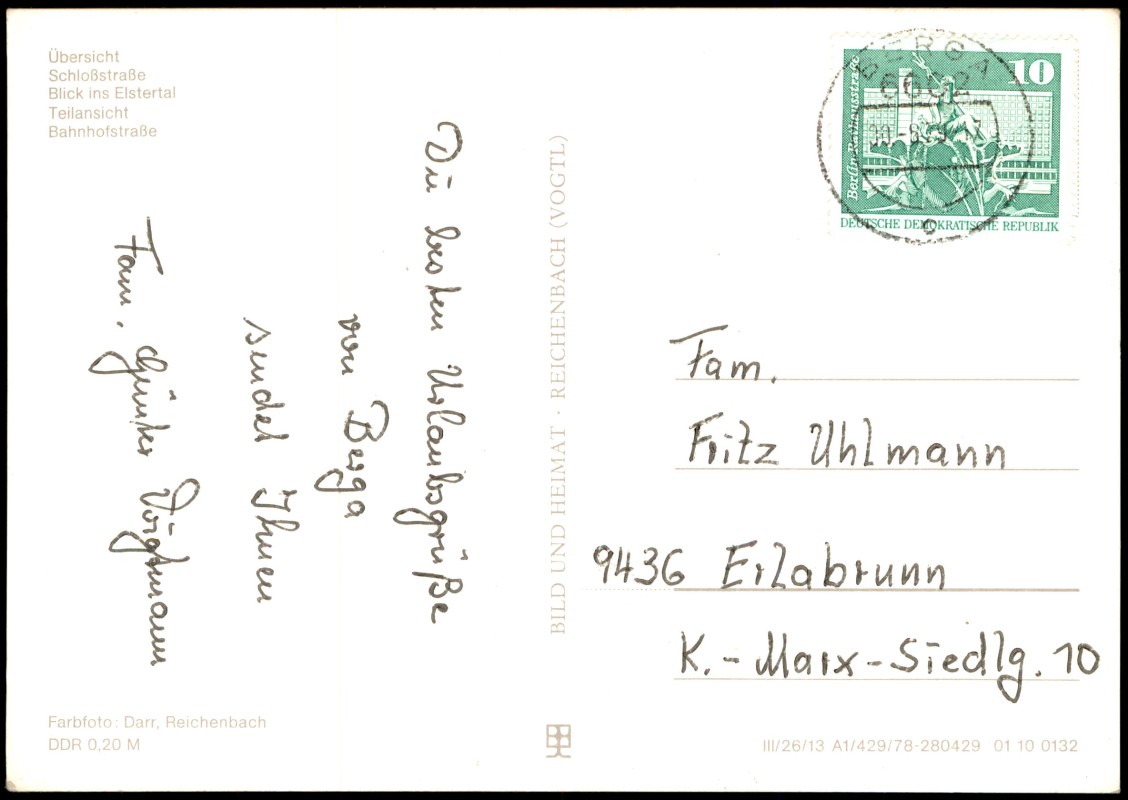 Übersicht
Schloßstraße
Blick ins Elstertal
Teilansicht
Bahnhofstraße
Die besten Urlaubsgrüße
von Berga
sendet Ihnen
Fam. Günter Voigtmann
Farbfoto: Darr, Reichenbach
DDR 0,20 M
BILD UND HEIMAT · REICHENBACH (VOGTL)
BERGA
6602
10
Berlin-Rathausstraße
DEUTSCHE DEMOKRATISCHE REPUBLIK
Fam.
Fritz Uhlmann
9436 Erlabrunn
K.-Marx-Siedlg. 10
III/26/13 A1/429/78-280429 01 10 0132